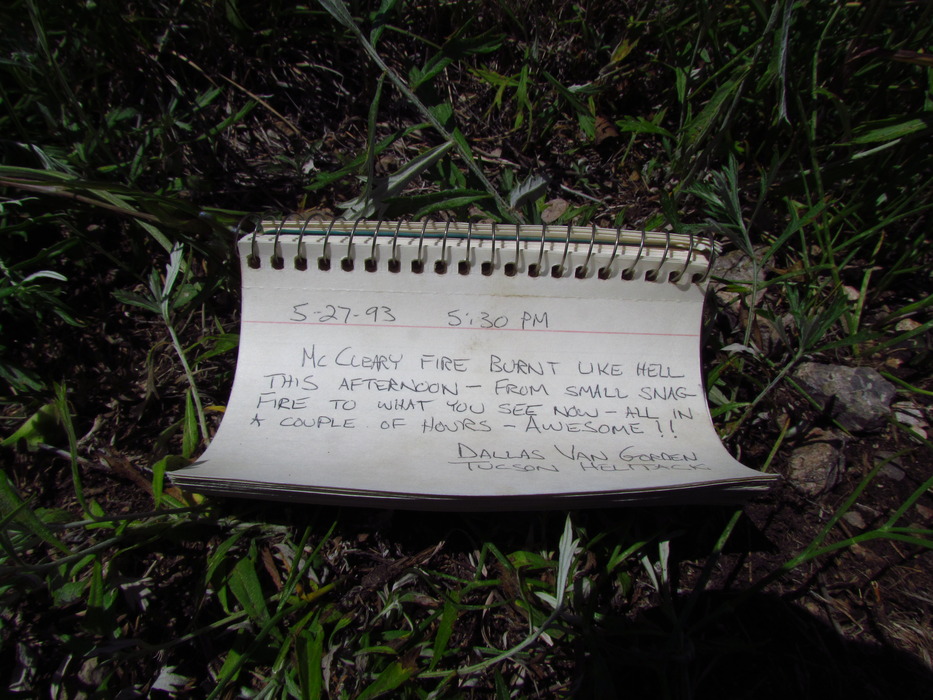 5-27-93 5:30 PM
McCLEARY FIRE BURNT LIKE HELL
THIS AFTERNOON - FROM SMALL SNAG
FIRE TO WHAT YOU SEE NOW - ALL IN
A COUPLE OF HOURS - AWESOME!!
DALLAS VAN GORDEN
TUCSON HELITACK